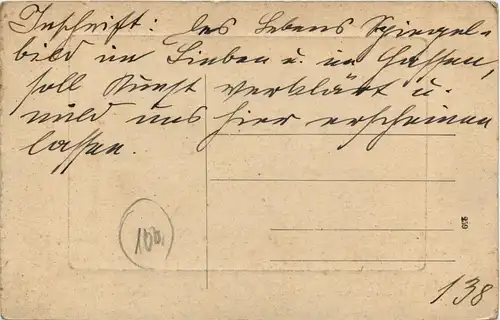 Inschrift: des Lebens Spiegel=
bild im Lieben u. im Hassen,
soll Kunst verklärt u.
mild uns hier erscheinen
lassen.
100.
138